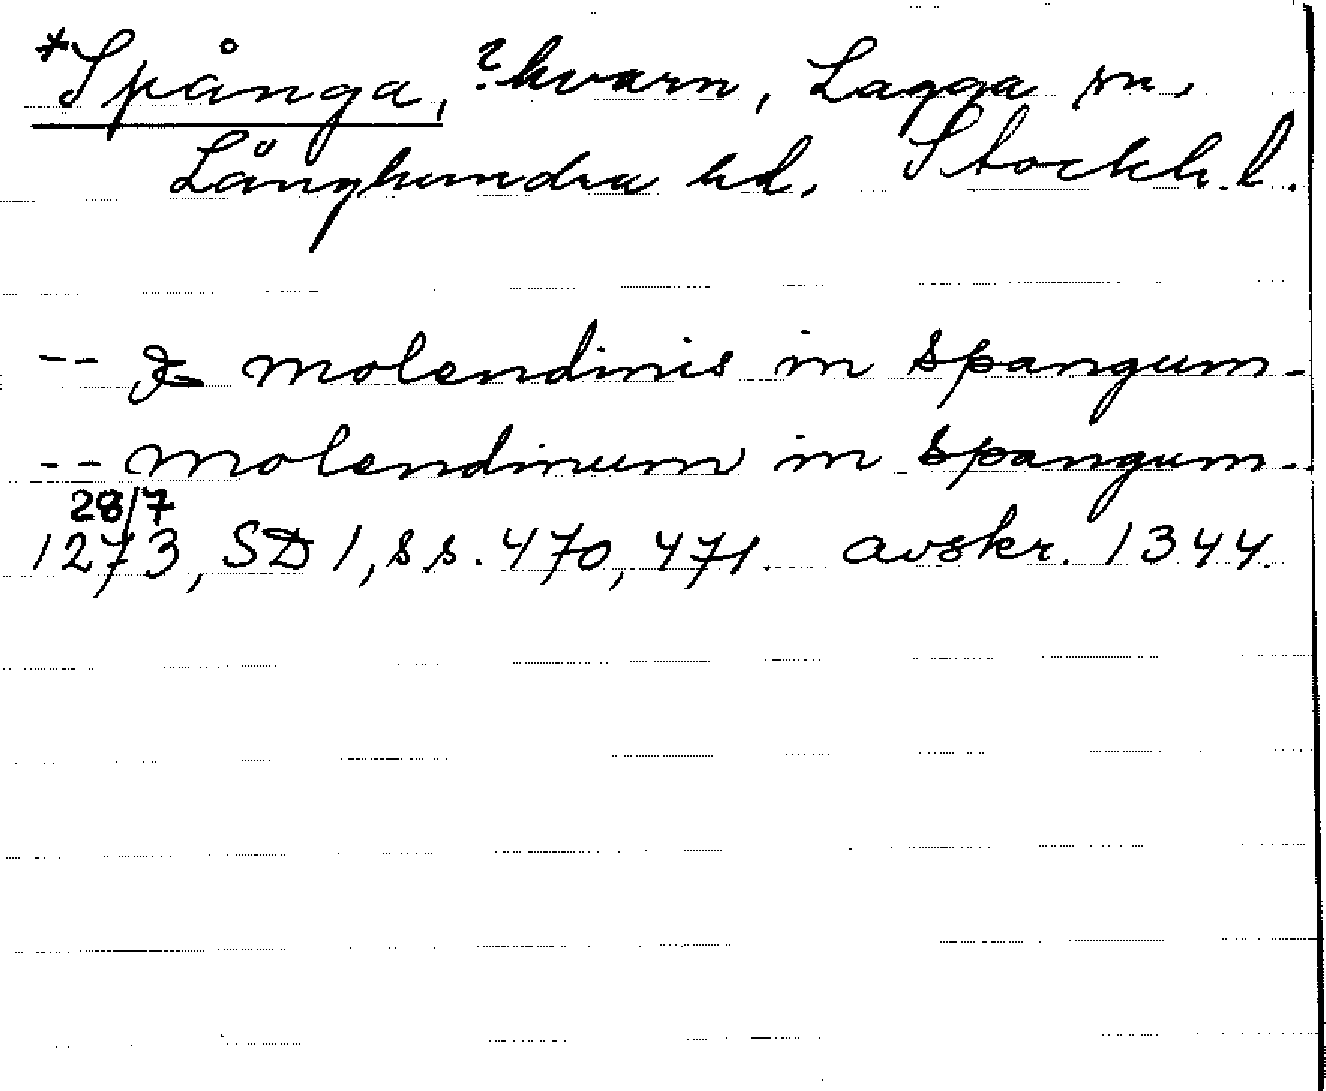 *Spånga, ?kvarn, Lagga sn,
Långhundra hd. Stockh. l.
-- molendinis in spangum-
-- molendinum in spangum--
28/7
1273, SD 1, s s. 470, 471. avskr. 1344.